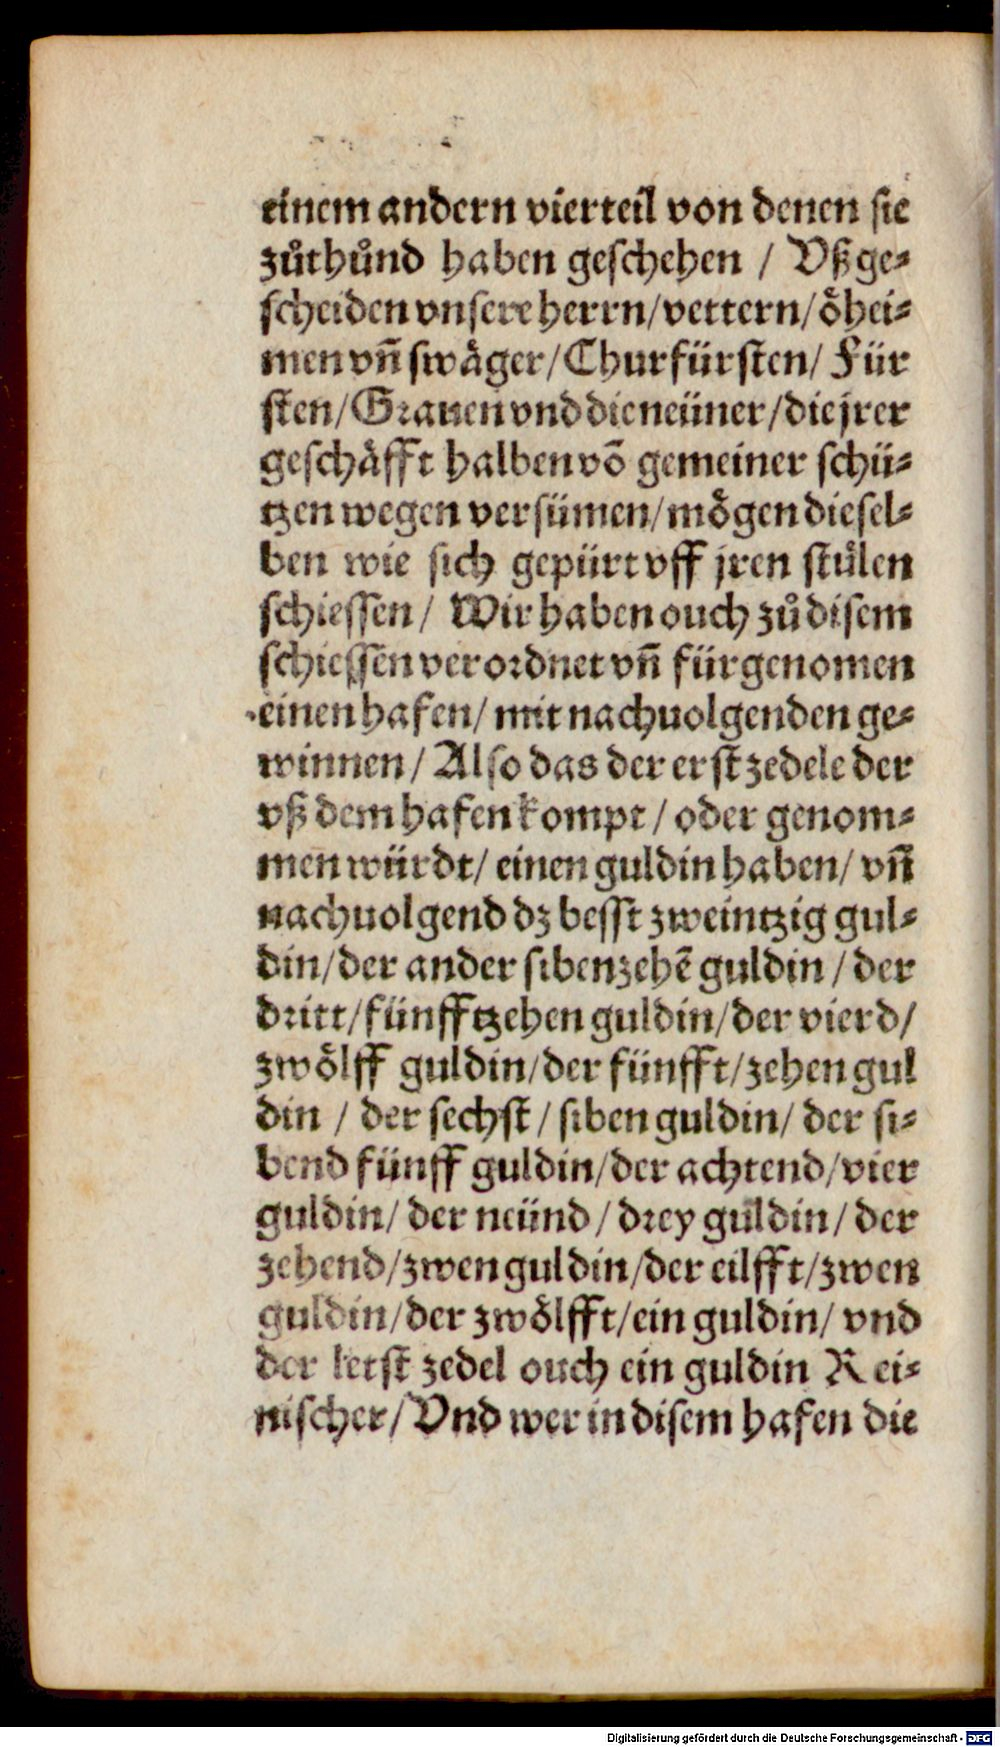 einem andern vierteil von denen sie
zůthůnd haben geschehen / Vßge⸗
scheiden vnsere herrn/vettern/ öhei⸗
men vn̄ swäger/Churfürsten/ Für
sten/Grauen vnd die neüner/die jrer
geschäfft halben vō gemeiner schü⸗
tzen wegen versümen/mögen diesel⸗
ben wie sich gepürt vff jren stülen
schiessen/ Wir haben ouch zů disem
schiessen verordnet vn̄ fürgenomen
einen hafen/ mit nachuolgenden ge⸗
winnen / Also das der erst zedele der
vß dem hafen kompt / oder genom⸗
men würdt/ einen guldin haben/ vn̄
nachuolgend dz besst zweintzig gul⸗
din/der ander sibenzehē guldin / der
dritt/fünfftzehen guldin/der vierd/
zwölff guldin/der fünfft/zehen gul
din / der sechst / siben guldin/ der si⸗
bend fünff guldin/der achtend/vier
guldin/ der neünd / drey guldin/ der
zehend/zwen guldin/der eilfft/zwen
guldin/der zwölfft/ein guldin/ vnd
der letst zedel ouch ein guldin Rei⸗
nischer/Vnd wer in disem hafen die
Digitalisierung gefördert durch die Deutsche Forschungsgemeinschaft - DFG